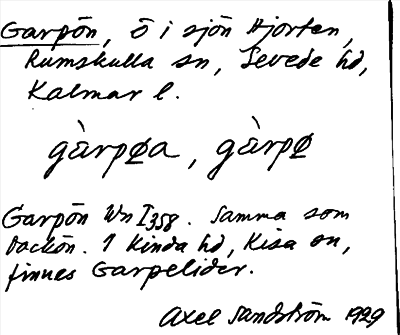 Garpön, ö i sjön Hjorten,
Rumskulla sn, Sevede hd,
Kalmar l.
gàrpøa, gàrpø
Garpön Wn I358. Samma som
Backön. I Kinda hd, Kisa sn,
finnes Garpelider.
Axel Sandström 1929